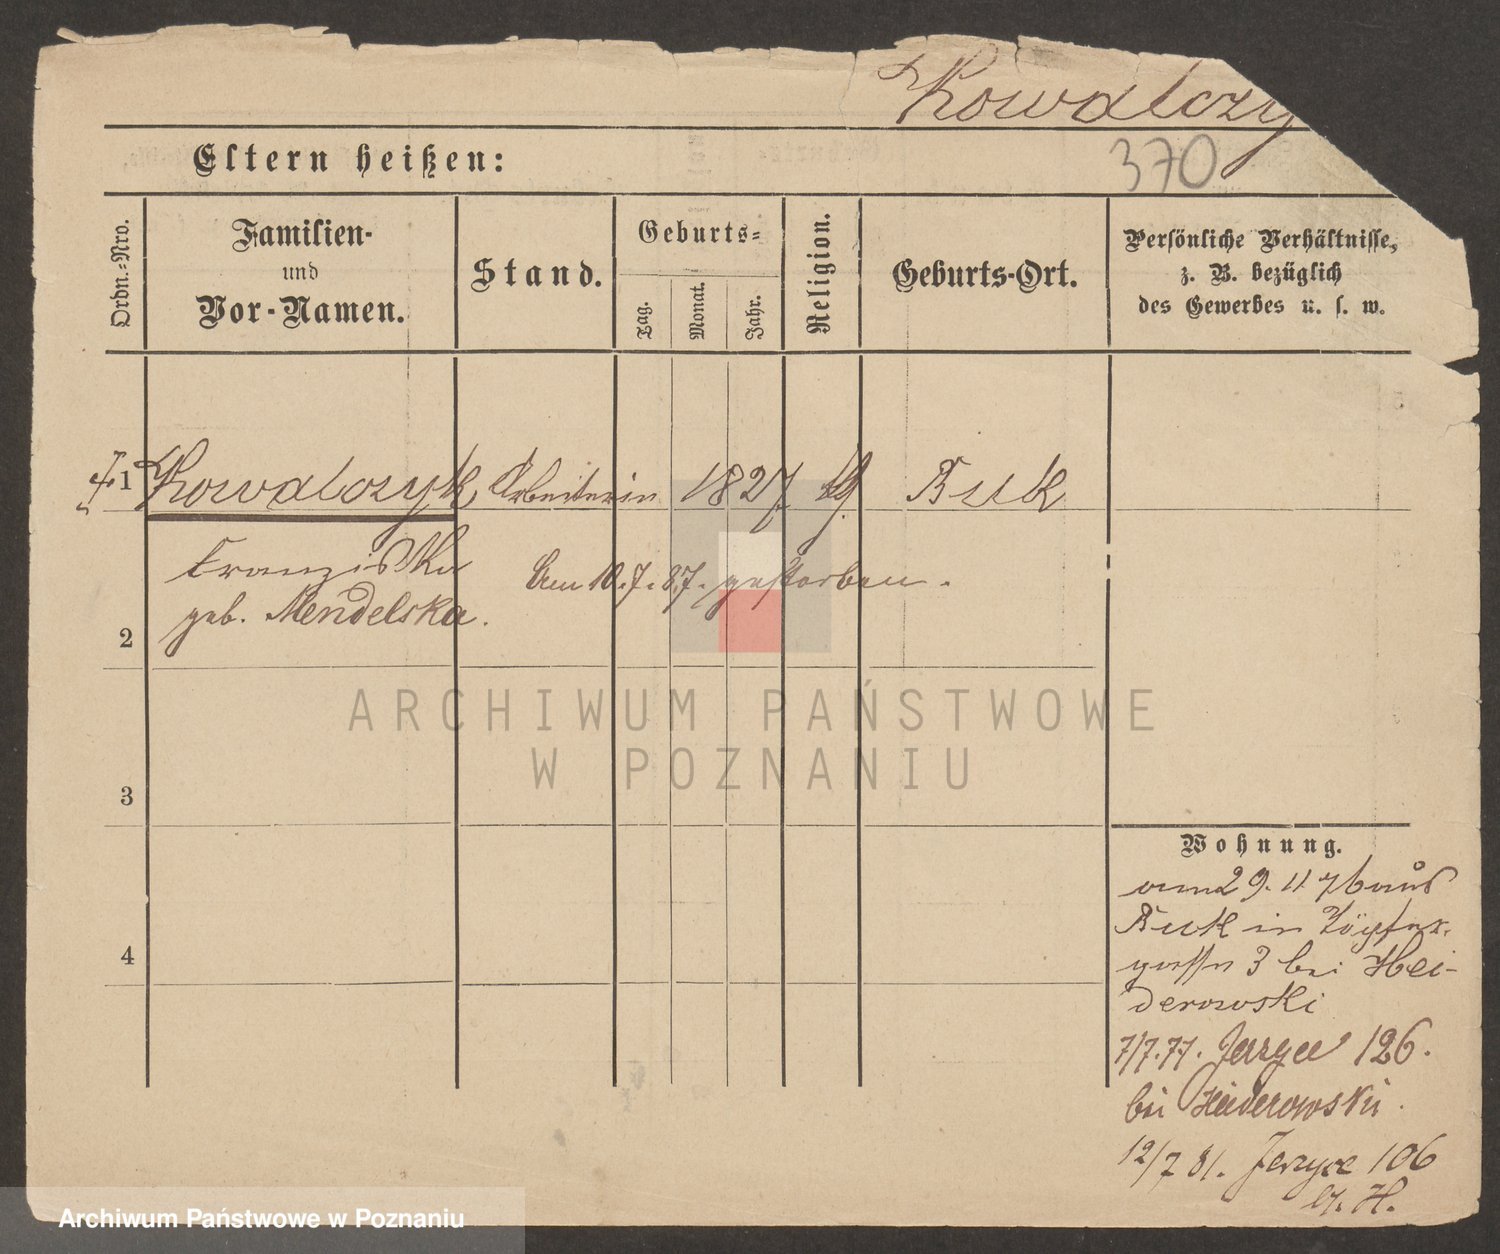 Kowalczy
370
Eltern heißen:
Ordn.-Nro.
Familien-
und
Vor-Namen.
Stand.
Geburts-
Tag.
Monat.
Jahr.
Religion.
Geburts-Ort.
Persönliche Verhältnisse,
z. B. bezüglich
des Gewerbes u. s. w.
1 Kowalczyk Arbeiterin 1827 Buk
Franziska
geb. Mendelska.
Am 10.7.87. gestorben.
2
3
4
Wohnung.
am 29.11 76 aus
Buk in Töpfer-
gasse 3 bei Hei-
derowski
7/7.77. Jerzyce 126.
bei Heiderowski.
12/7 81. Jerzyce 106
b. H.
ARCHIWUM PAŃSTWOWE
W POZNANIU
Archiwum Państwowe w Poznaniu